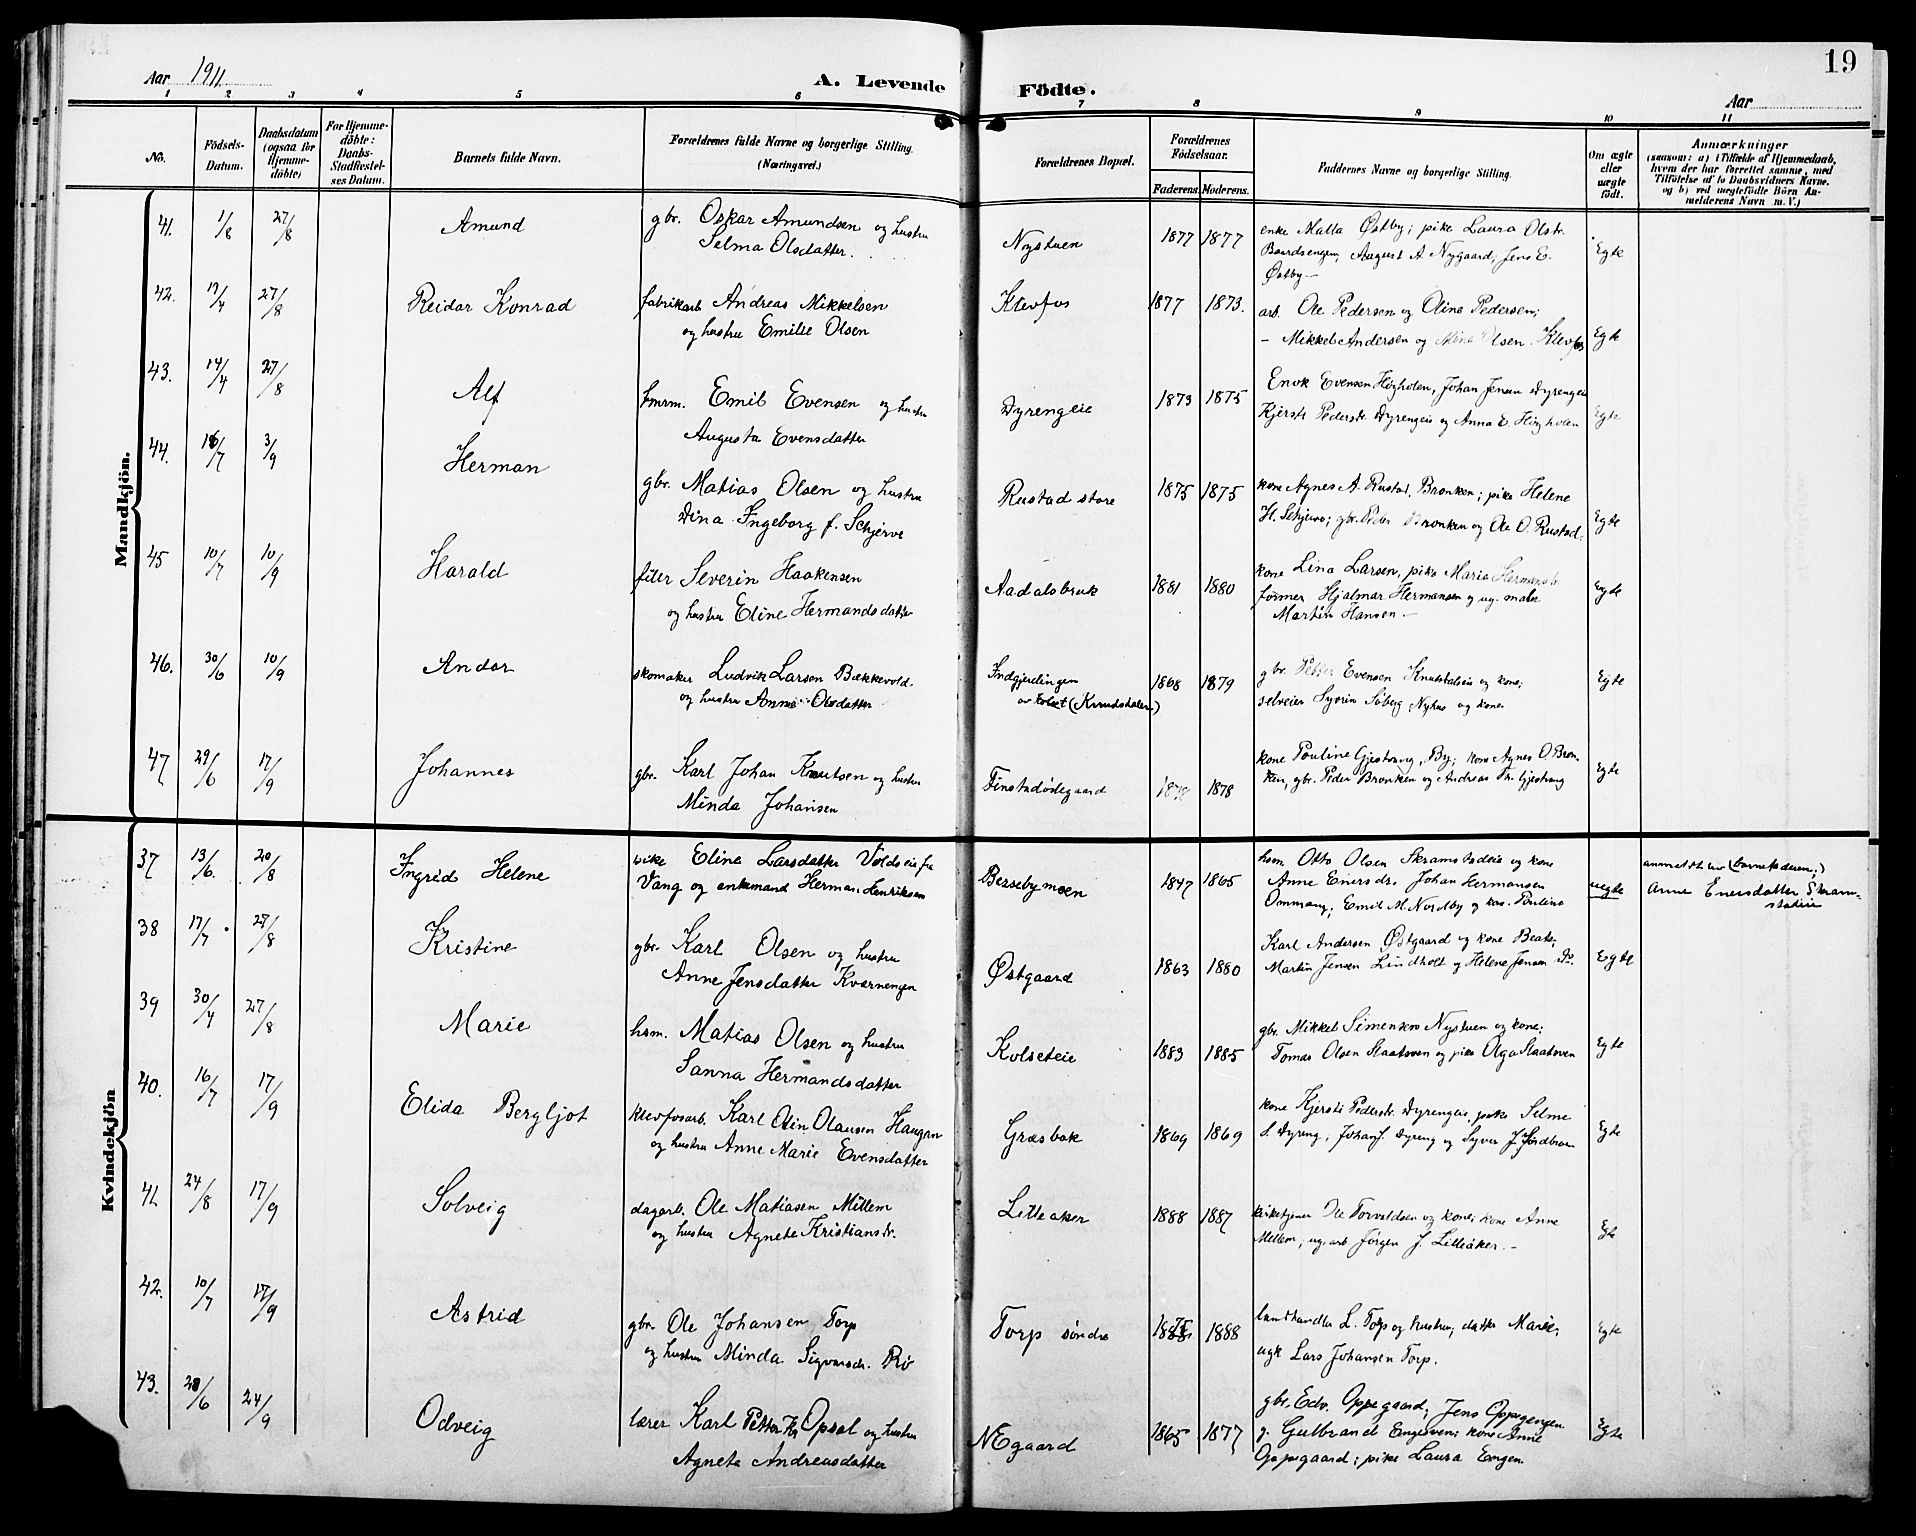 19
Aar 1911.
A. Levende
Födte.
Aar
1 2 3 4 5 6 7 8 9 10 11
No.
Födsels-
Datum.
Daabsdatum
(ogsaa for
Hjemme-
döbte)
For Hjemme-
döbte:
Daabs-
Stadfæstel-
ses Datum.
Barnets fulde Navn.
Forældrenes fulde Navne og borgerlige Stilling.
(Næringsvei.)
Forældrenes Bopæl.
Forældrenes
Födselsaar.
Faderens. Moderens.
Faddernes Navne og borgerlige Stilling.
Om ægte
eller
uægte
födt.
Anmærkninger
(saasom: a) i Tilfælde af Hjemmedaab,
hvem der har forrettet samme, med
Tilföielse af to Daabsvidners Navne.
og b) ved uægtefödte Börn An-
melderens Navn m. V.)
Mandkjön.
41. 1/8 27/8 Amund gbr. Oskar Amundsen og hustru
Selma Olsdatter.
Nystuen 1877 1877 enke Malla Østby; pike Laura Olstr.
Baardsengen, August A. Nygaard, Jens E.
Østby— Egte
42. 17/4 27/8 Reidar Konrad fabrikarb Andreas Mikkelsen
og hustru Emilie Olsen
Klevfos 1877 1873. arb. Ole Pedersen og Oline Pedersen;
– Mikkel Andersen og Olsen. Klevfos Egte
43. 14/4 27/8 Alf tmrm. Emil Evensen og hustru
Augusta Evensdatter
Dyrengeie 1873 1875 Enok Evensen Høgholen, Johan Jensen Dyrengeie
Kjersti Pederstr. Dyrengeie og Anna E. Høgholen Egte
44. 16/7 3/9 Herman gbr. Matias Olsen og hustru
Dina Ingeborg f. Schjerve
Rustad store 1875 1875 kone Agnes A. Rustad, Bronken; pike Helene
H. Schjerve; gbr. Peder Bronken og Ole O. Rustad. Egte
45 10/7 10/9 Harald filer Severin Haakensen
og hustru Eline Hermandsdatter
Aadalsbruk 1881 1880 kone Lina Larsen, pike Marie Hermanstr.
former Hjalmar Hermansen og ug. maler
Martin Hansen— Egte
46. 30/6 10/9 Andor skomaker Ludvik Larsen Bækkevold.
og hustru Anne Olsdatter
Indgjerdingen
av Kolset (Knudsdalen) 1868 1879 gbr. Petter Evensen Knutsdaleie og kone;
selveier Syverin Søberg, Nyhus og kone Egte
47 29/6 17/9 Johannes gbr. Karl Johan Knutsen og hustru
Minda Johansen
Finstadødegaard 1878 1878 kone Pauline Gjestvang, By; kone Agnes O. Bron-
ken, gbr. Peder Bronken og Andreas Gjestvang Egte
Kvindekjön
37 13/6 20/8 Ingrid Helene pike Eline Larsdatter Voldseie fra
Vang og enkemand Herman Henriksen
Bersebymoen 1847 1865 hsm. Otto Olsen Skramstadeie og kone
Anne Enersdr. Johan Hermansen
Ommang; Emil M. Nordby og kone Pauline uegte
anmeldt av (barnefaderen;)
Anne Enersdatter Skram-
stadeie
38 17/7 27/8 Kristine gbr. Karl Olsen og hustru
Anne Jensdatter Kvernengen
Østgaard 1863 1880 Karl Andersen Østgaard og kone Beate;
Martin Jensen Lindholt og Helene Jensen Egte
39 30/4 27/8 Marie hsm. Matias Olsen og hustru
Sanna Hermandsdatter
Kolseteie 1883 1885 gbr. Mikkel Simensen Nystuen og kone;
Tomas Olsen Staatsven og pike Olga Staatsven Egte
40. 16/7 17/9 Elida Bergljot klevfosarb. Karl Olin Olausen Haugen
og hustru Anne Marie Evensdatter
Græsbak 1869 1869 kone Kjersti Pederstr. Dyrengeie, pike Selme
S. Dyreng, Johan J. Dyreng og Syver J. Egte
41. 24/8 17/9 Solveig dagarb. Ole Matiasen Millem
og hustru Agnete Kristianstr.
Lilleaker 1888 1887 kirketjener Ole Torvaldsen og kone; kone Anne
Mellem; ug. arb Jørgen J. Lilleaker.– Egte
42. 10/7 17/9 Astrid gbr. Ole Johansen Torp
og hustru Minda Sigvarsdr. Rö
Torp søndre 1888 landhandler L. Torp og hustru; datter Marie;
ugk Lars Johansen Torp. Egte
43. 28/6 24/9 Odveig lærer Karl Petter Opsal og hustru
Agnete Andreasdatter
NEgaard 1865 1877 gbr. Edv. Oppegaard; Jens Oppegengen
g. Gulbrand Engesven; kone Anne
Oppegaard; pike Laura Engen Egte